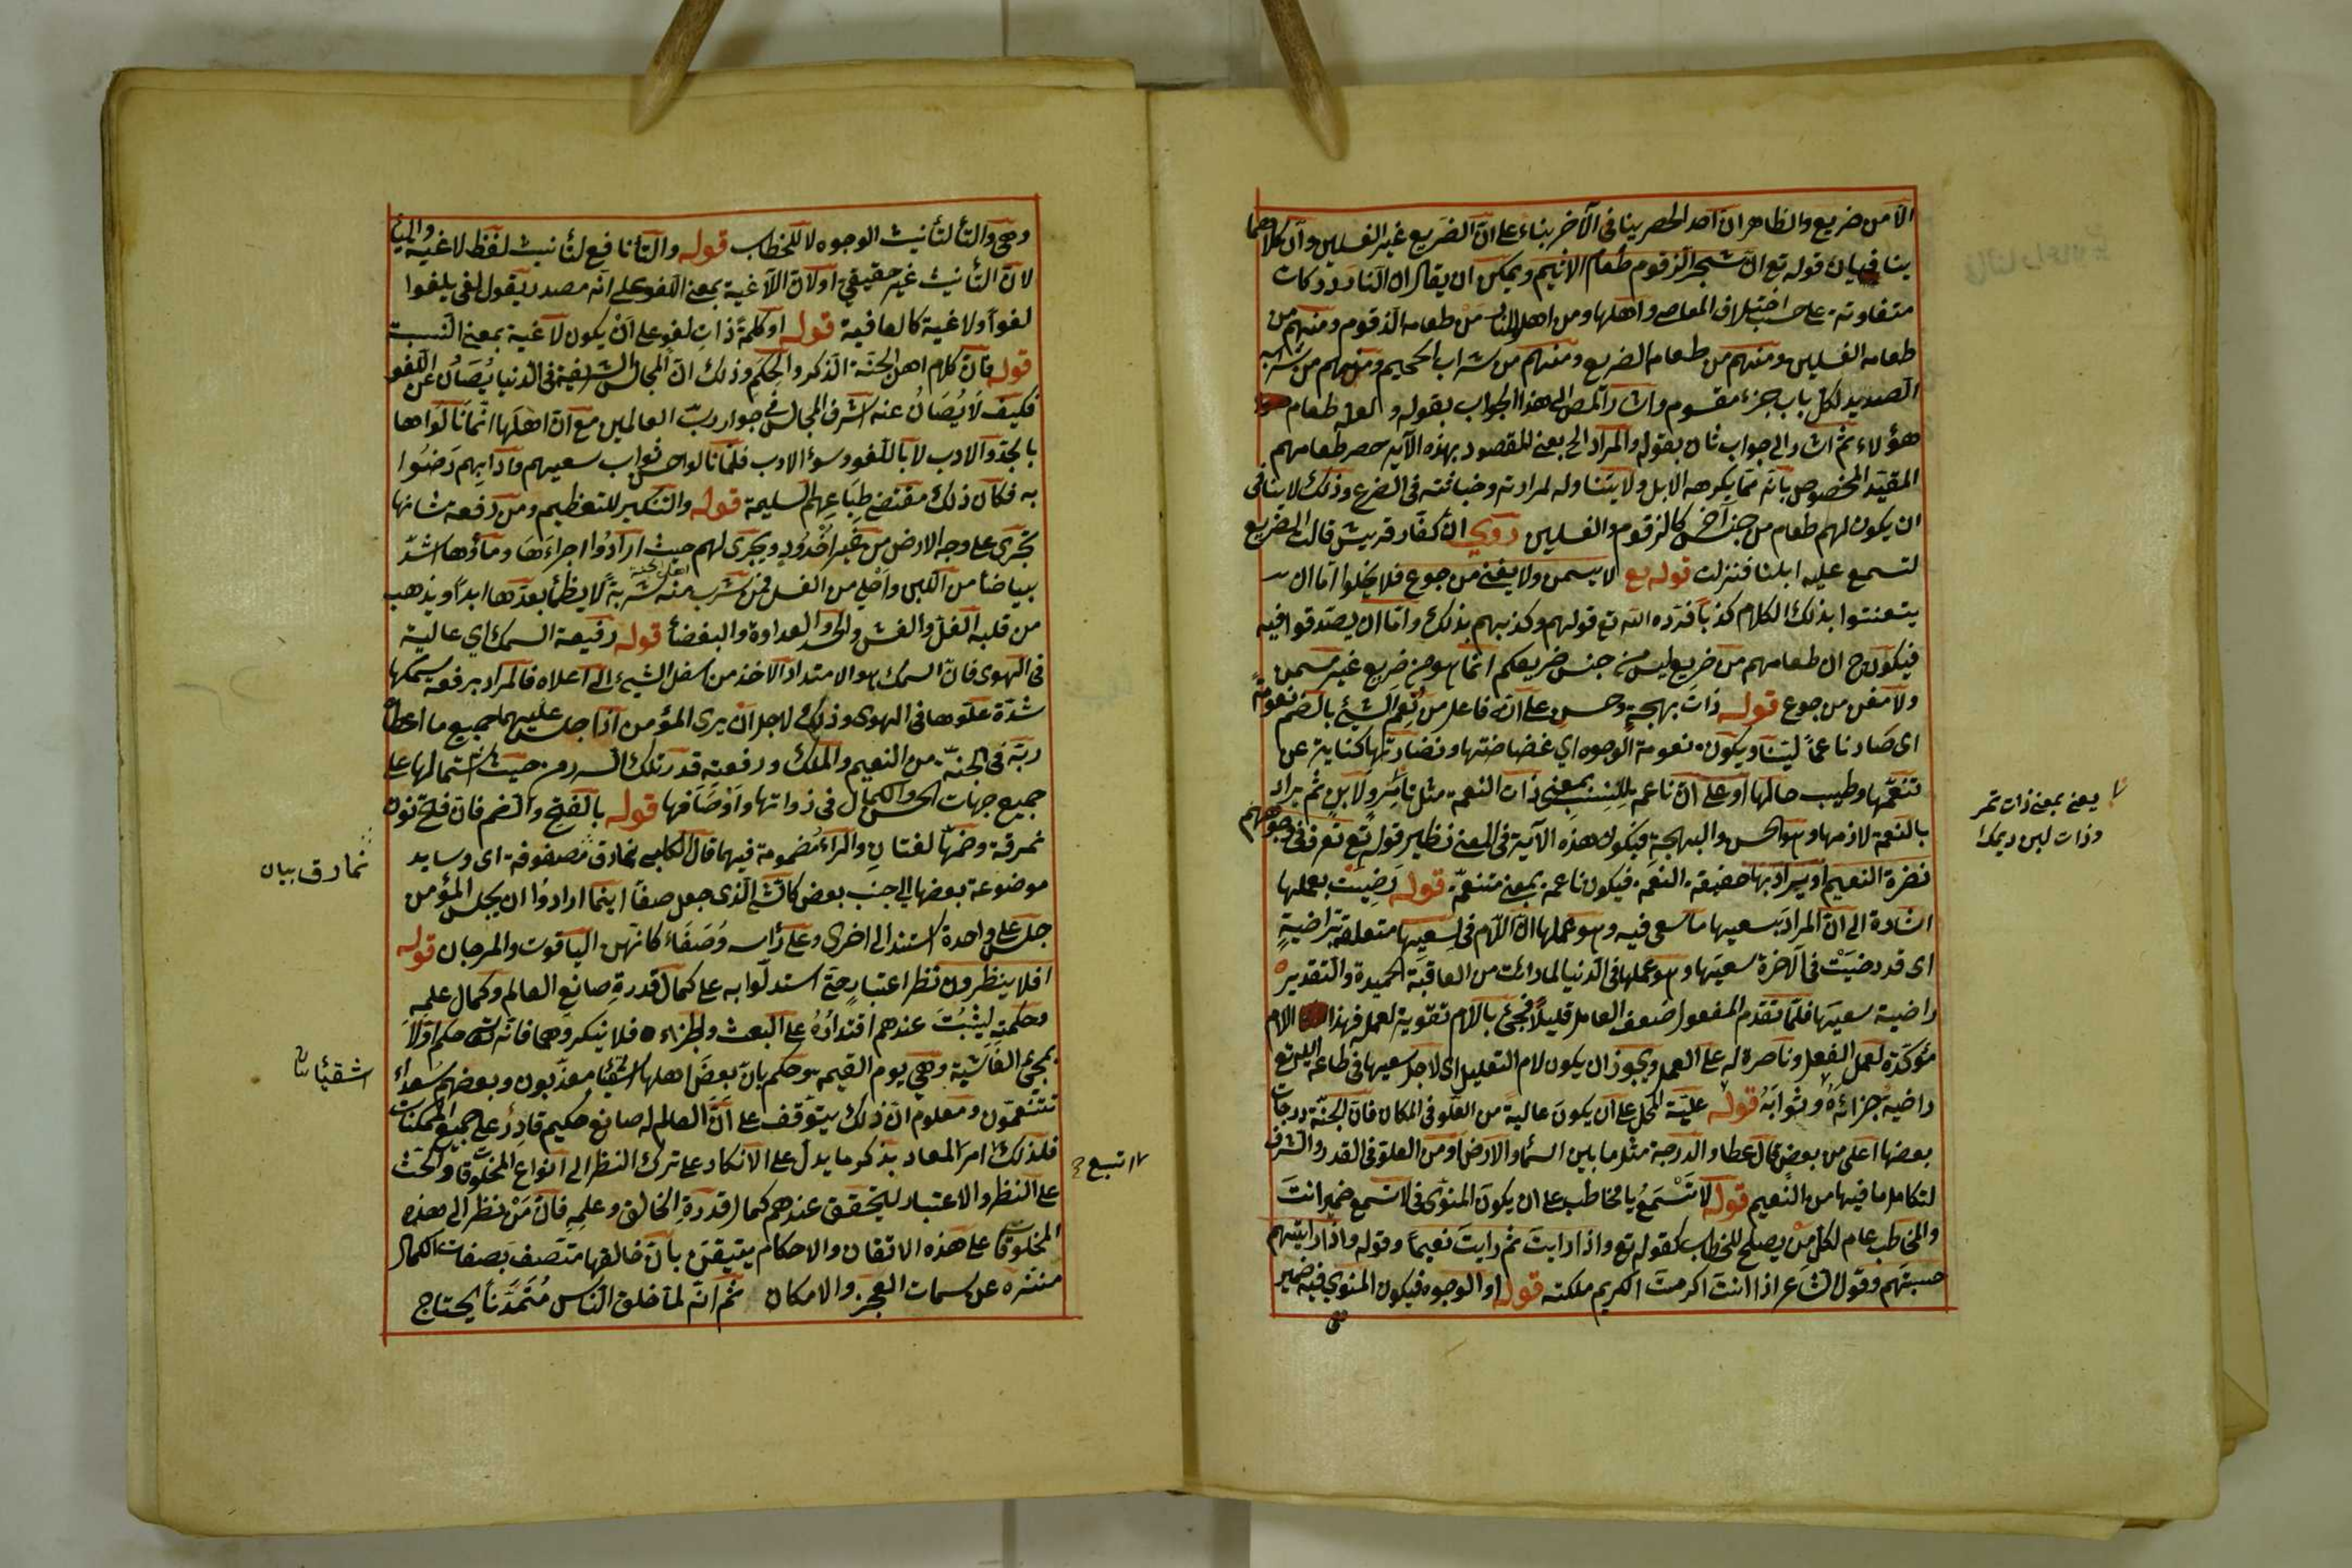 الا من ضريع والظاهر ان احد الحصرين ينافى الآخر بناء على ان الضريع غير الغسلين وان كلاهما
ينافيان قوله تع ان شجر الزقوم طعام الاثيم ويمكن ان يقال ان النار دركات
متفاوتة على حسب اختلاف المعاصى واهلها ومن اهل النار من طعامه الزقوم ومنهم من
طعامه الغسلين ومنهم من طعامه الضريع ومنهم من شراب الحميم ومنهم من شرابه
الصديد لكل باب جزء مقسوم واشار المص الى هذا الجواب بقوله ولعله طعام
هؤلاء ثم اشار الى جواب ثان بقوله والمراد الى يعنى المقصود بهذه الآية حصر طعامهم
المقيد المخصوص بانه مما يكرهه الابل ولا يتناوله لمرارته وخباثته فى الضرع وذلك لا ينافى
ان يكون لهم طعام من جنس آخر كالزقوم والغسلين روى ان كفار قريش قالت الضريع
لتسمع عليه ابلنا فنزلت قوله تع لا يسمن ولا يغنى من جوع فلا يخلوا اما ان
يتعنتوا بذلك الكلام كذبا فرده الله تع قولهم وكذبهم بذلك واما ان يصدقوا فيه
فيكون ح ان طعامهم من ضريع ليس من جنس ضريعكم انما هو من ضريع غير مسمن
ولا مغن من جوع قوله ذات بهجة وحسن على انه فاعل من نعم الشيئ بالضم نعومة
اى صار ناعما لينا ويكون نعومة الوجوه اى غضاضتها ونضارتها كناية عن
تنعمها وطيب حالها او على ان ناعمة للنسب بمعنى ذات النعمة مثل تامر ولابن ثم يراد
بالنعمة لازمها وهو الحسن والبهجة فيكون هذه الآية فى المعنى نظير قوله تع تعرف فى وجوههم
نضرة النعيم او يراد بها حقيقة النعمة فيكون ناعمة بمعنى متنعمة قوله رضيت بعملها
اشارة الى ان المراد بسعيها ما سعى فيه وهو عملها ان اللام فى لسعيها متعلقة براضية
اى قد رضيت فى الآخرة سعيها وهو عملها فى الدنيا لما رأت من العاقبة الحميدة والتقدير
راضية سعيها فلما تقدم المفعول ضعف العامل قليلا فجئ باللام تقوية لعمله فهذا اللام
مؤكدة لعمل الفعل وناصرة له على العمل ويجوز ان يكون لام التعليل اى لاجل سعيها فى طاعة الله تع
راضية جزائه وثوابه قوله علية المحل على ان يكون عالية من العلو فى المكان فان الجنة درجات
بعضها اعلى من بعض قال عطاء والدرجة مثل ما بين السماء والارض او من العلو فى القدر والشرف
لتكامل ما فيها من النعيم قوله لا تسمع يا مخاطب على ان يكون المنوى فى لا تسمع ضمير انت
والمخاطب عام لكل من يصلح للخطاب كقوله تع واذا رايت ثم رايت نعيما وقوله واذا رايتهم
حسبتهم وقول الشاعر اذا انت اكرمت الكريم ملكته قوله او الوجوه فيكون المنوى فيه ضمير
هى
يعنى بمعنى ذات تمر
وذات لبن ديمك
وهى والتأ لتأنيث الوجوه لا للخطاب قوله والتأ نافع لتأنيث لفظ لاغية والياء
لان التأنيث غير حقيقى او لان اللاغية بمعنى اللغو على انه مصدر يقول لغى يلغوا
لغوا ولاغية كالعافية قوله او كلمة ذات لغو على ان يكون لاغية بمعنى النسبة
قوله فان كلام اهل الجنة الذكر والحكم وذلك ان المجالس الشريفة فى الدنيا يصان عن اللغو
فكيف لا يصان عنه اشرف المجالس فى جوار رب العالمين مع ان اهلها انما نالواها
بالجد والادب لا باللغو وسوء الادب فلما نالوا حسن ثواب سعيهم وآدابهم رضوا
به فكان ذلك مقتضى طباعهم السليمة قوله والتنكير للتعظيم ومن رفعة شانها
تجرى على وجه الارض من غير اخدود ويجرى لهم حيث ارادوا اجراءها وماؤها اشد
بياضا من اللبن واحلى من العسل فمن شرب منه شربة لا يظمأ بعدها ابدا ويذهب
اهل الجنة
من قلبه الغل والغش والحسد والعداوة والبغضأ قوله رفيعة السمك اى عالية
فى الهوى فان السمك هو الامتداد الاخذ من اسفل الشيئ الى اعلاه فالمراد برفعة سمكها
شدة علوها فى الهوى وذلك لاجل ان يرى المؤمن اذا جلس عليها جميع ما اعطاه
ربه فى الجنة من النعيم والملك ورفعة قدر تلك السرر من حيث اشتمالها على
جميع جهات الحسن والكمال فى ذواتها واوصافها قوله بالفتح والضم فان فتح نون
نمرقة وضمها لغتان والراء مضمومة فيهما قال الكلبى نمارق مصفوفة اى وسايد
موضوعة بعضها الى جنب بعض كالشئ الذى جعل صفا اينما ارادوا ان يجلس المؤمن
جلس على واحدة استند الى اخرى وعلى رأسه وصفاء كانهن الياقوت والمرجان قوله
افلا ينظرون نظر اعتبار حتى استدلوا به على كمال قدرة صانع العالم وكمال علمه
وحكمته ليثبت عندهم اقتداره على البعث والجزاء فلا ينكروهما فانه تعالى حكم اولا
بمجئ الغاشية وهى يوم القيمة وحكم بان بعض اهلها اشقيأ معذبون وبعضهم سعداء
تتنعمون ومعلوم ان ذلك يتوقف على ان العالم له صانع حكيم قادر على جميع الممكنات
فلذلك امر المعاد بذكر ما يدل على الانكار على ترك النظر الى انواع المخلوقات والحث
على النظر والاعتبار ليتحقق عندهم كمال قدرة الخالق وعلمه فان من نظر الى هذه
المخلوقات على هذه الاتقان والاحكام يتيقن بان خالقها متصف بصفات الكمال
منزه عن سمات العجز والامكان ثم انه لما خلق الناس متمدنا يحتاج
نمارق بيان
اشقيأ
اتبع